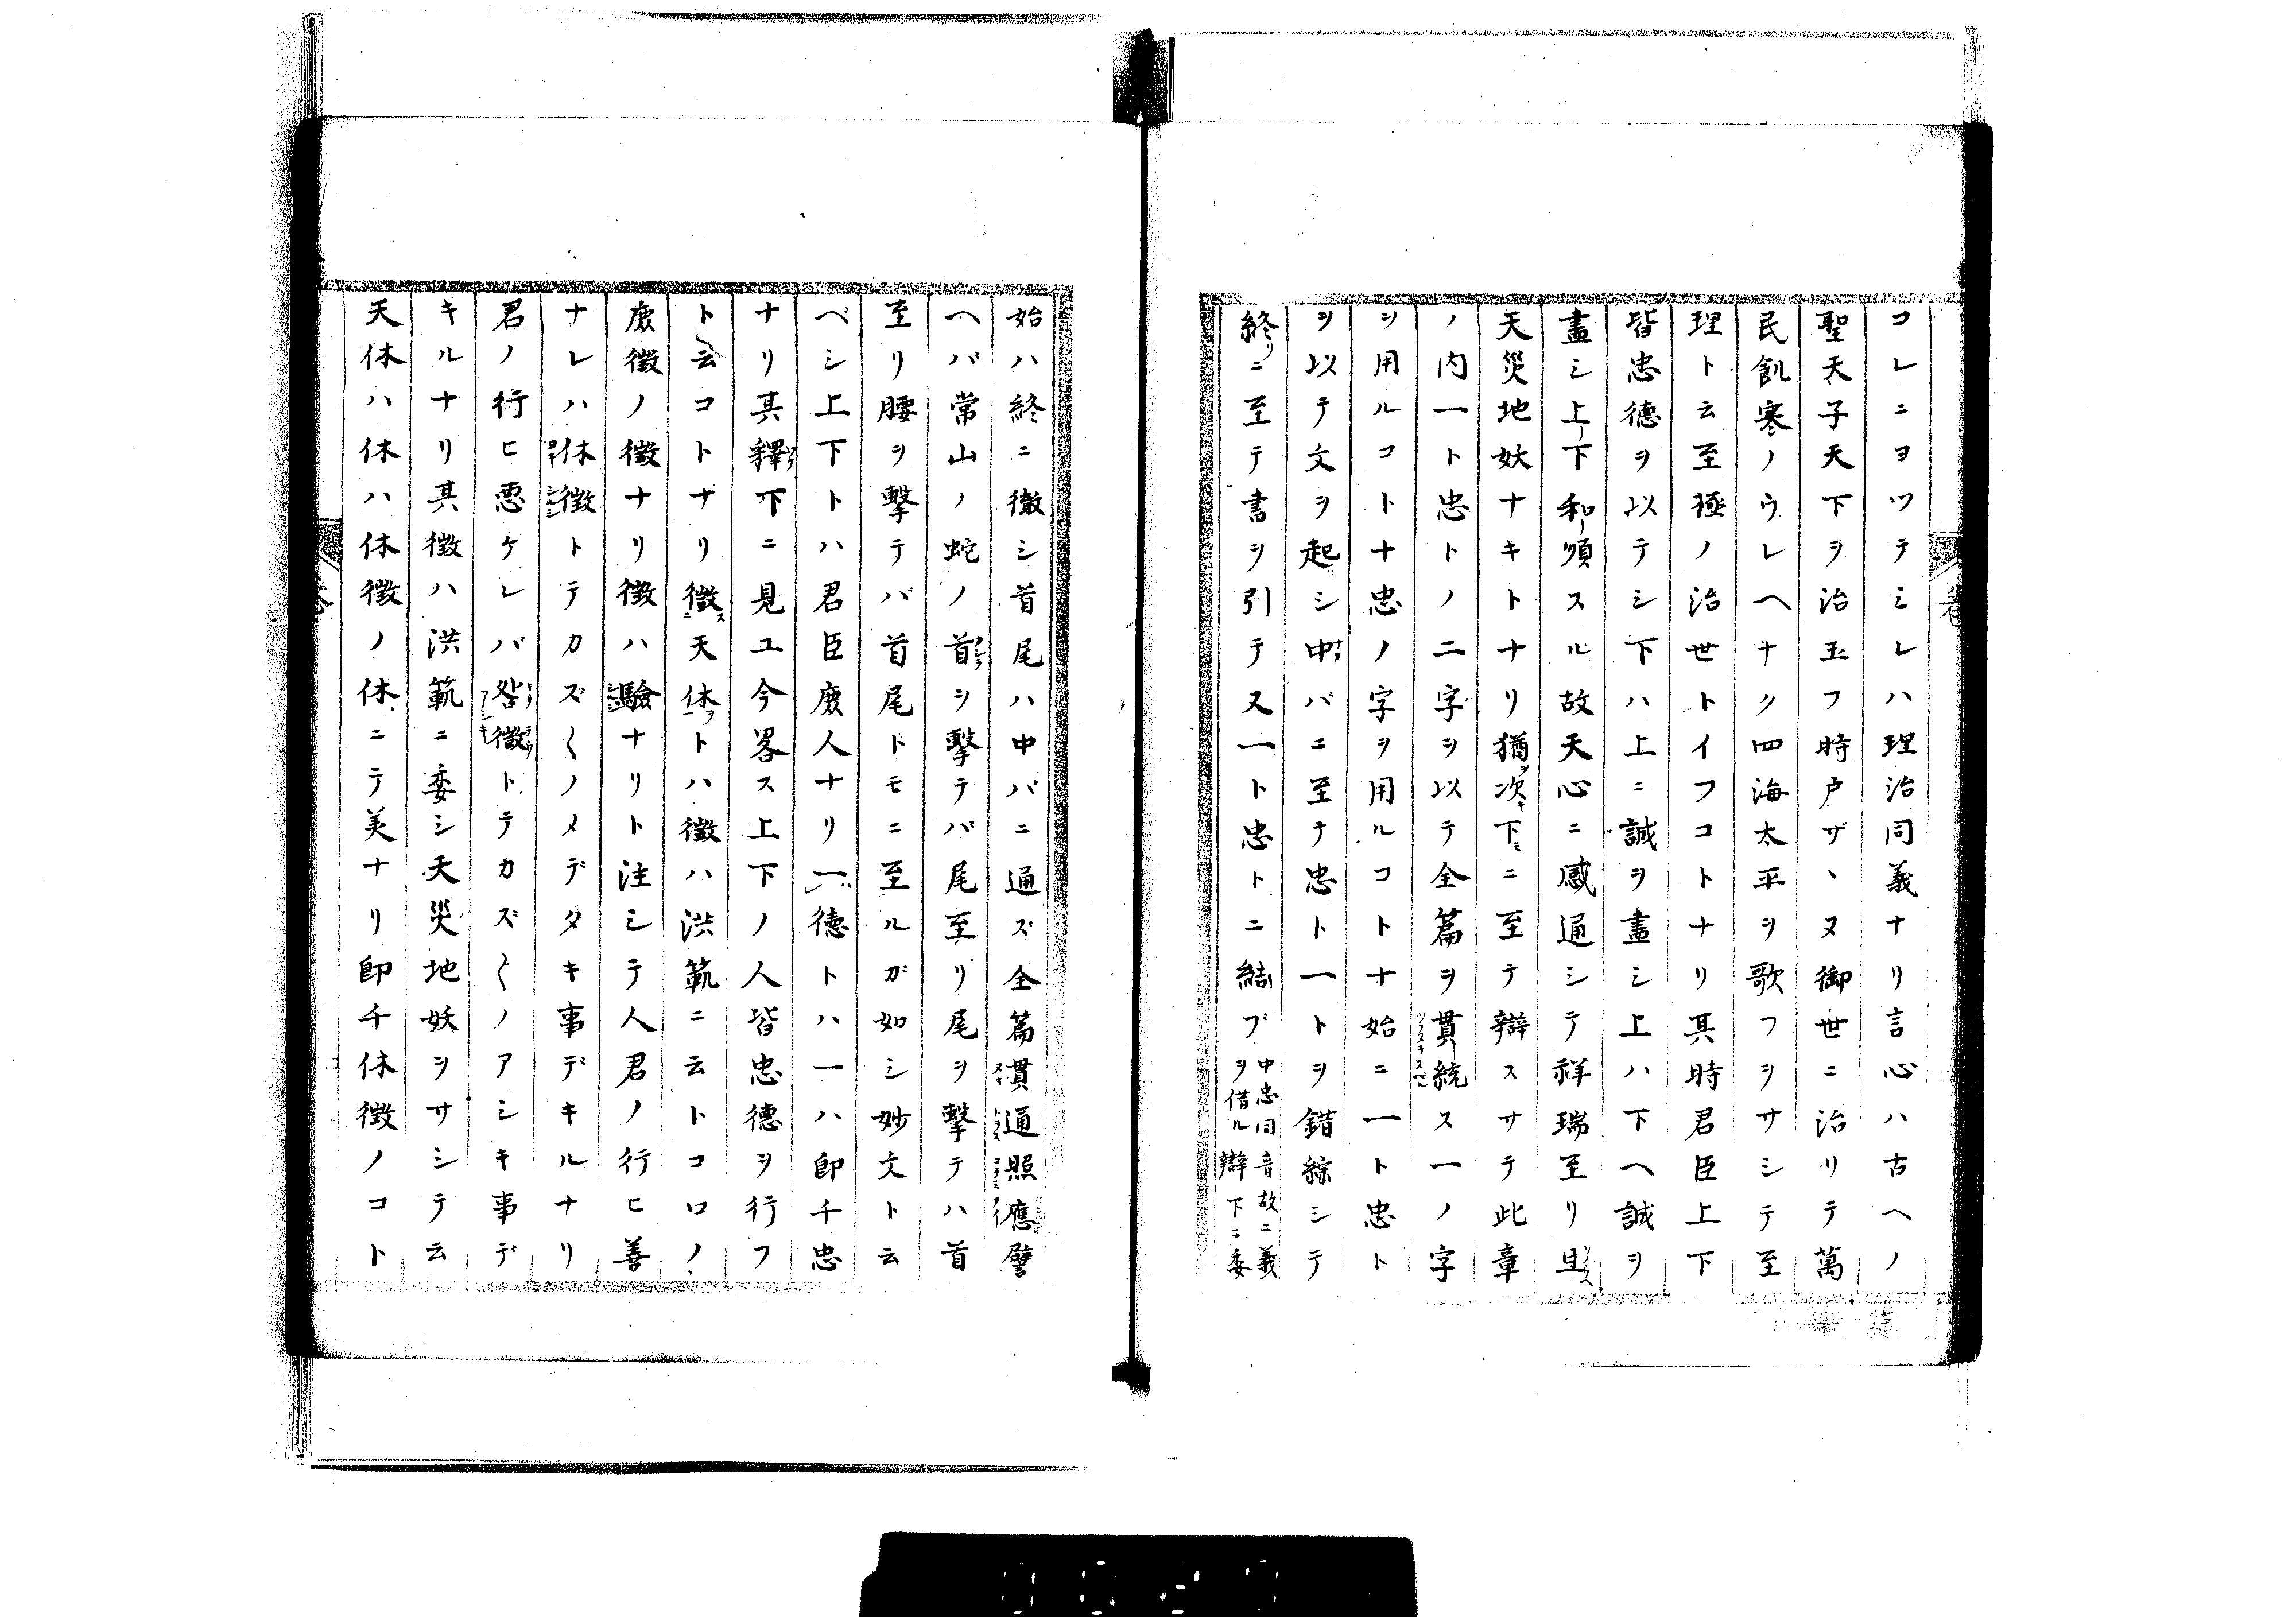 コレニヨツテミレハ理治同義ナリ言心ハ古ヘノ
聖天子天下ヲ治玉フ時戸ザヽヌ御世ニ治リテ萬
民飢寒ノウレヘナク四海太平ヲ歌フヲサシテ至
理ト云至極ノ治世トイフコトナリ其時君臣上下
皆忠徳ヲ以テシ下ハ上ニ誠ヲ盡シ上ハ下ヘ誠ヲ
盡シ上下和順スル故天心ニ感通シテ祥瑞至リ且
天災地妖ナキトナリ猶次下ニ至テ辯スサテ此章
ノ内一ト忠トノ二字ヲ以テ全篇ヲ貫統ス一ノ字
シ用ルコト十忠ノ字ヲ用ルコト十始ニ一ト忠ト
ヲ以テ文ヲ起シ中バニ至テ忠ト一トヲ錯綜シテ
終リニ至テ書ヲ引テ又一ト忠トニ結ブ中忠同音故ニ義ヲ借ル辯下ニ委
始ハ終ニ徹シ首尾ハ中バニ通ズ全篇貫通照應譬
ヘバ常山ノ蛇ノ首ヲ擊テバ尾至リ尾ヲ擊テハ首
至リ腰ヲ擊テバ首尾トモニ至ルガ如シ妙文ト云
ベシ上下トハ君臣庶人ナリ一徳トハ一ハ即千忠
ナリ其釋下ニ見ユ今畧ス上下ノ人皆忠徳ヲ行フ
ト云コトナリ徴ス天休ヲトハ徴ハ洪範ニ云トコロノ
庶徴ノ徴ナリ徴ハ驗ナリト注シテ人君ノ行ヒ善
ナレハ休徴トテカズ〱ノメデタキ事デキルナリ
君ノ行ヒ悪ケレバ咎徴トテカズ〱ノアシキ事デ
キルナリ其徴ハ洪範ニ委シ天災地妖ヲサシテ云
天休ハ休ハ休徴ノ休ニテ美ナリ即千休徴ノコト